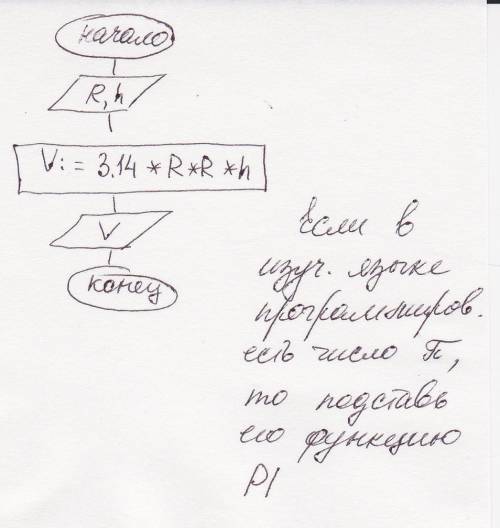 начало
R, h
V: = 3.14 * R * R * h
V
конец
Если в
изуч. языке
программиров.
есть число π,
то подставь
его функцию
PI